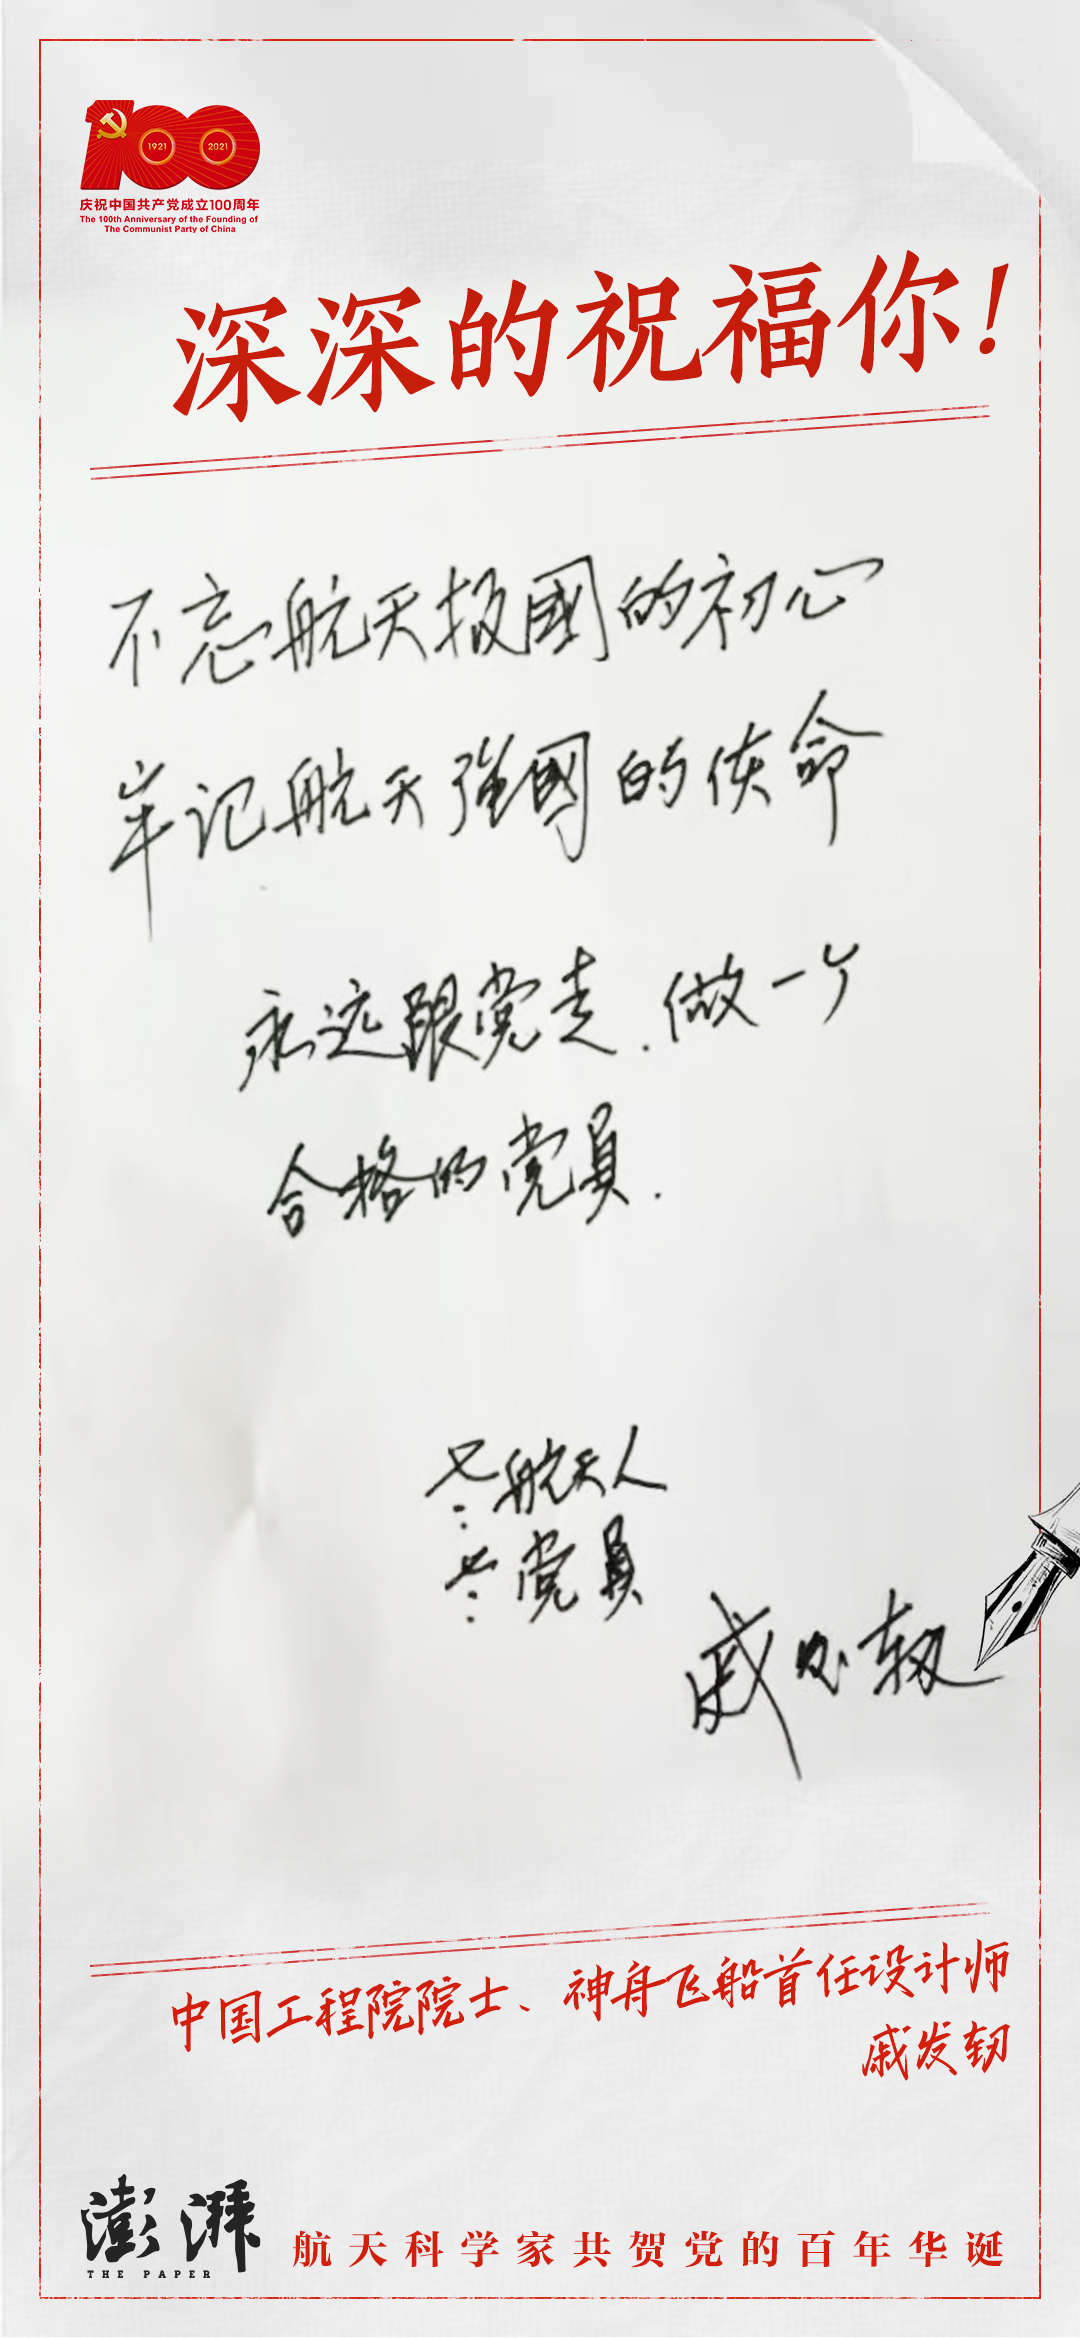 1921
2021
庆祝中国共产党成立100周年
The 100th Anniversary of the Founding of
The Communist Party of China
深深的祝福你!
不忘航天报國的初心
牢记航天强國的使命
永远跟党走.做一个
合格的党员.
老航天人
老党员
戚发轫
中国工程院院士、神舟飞船首任设计师
戚发轫
澎湃
THE PAPER
航天科学家共贺党的百年华诞